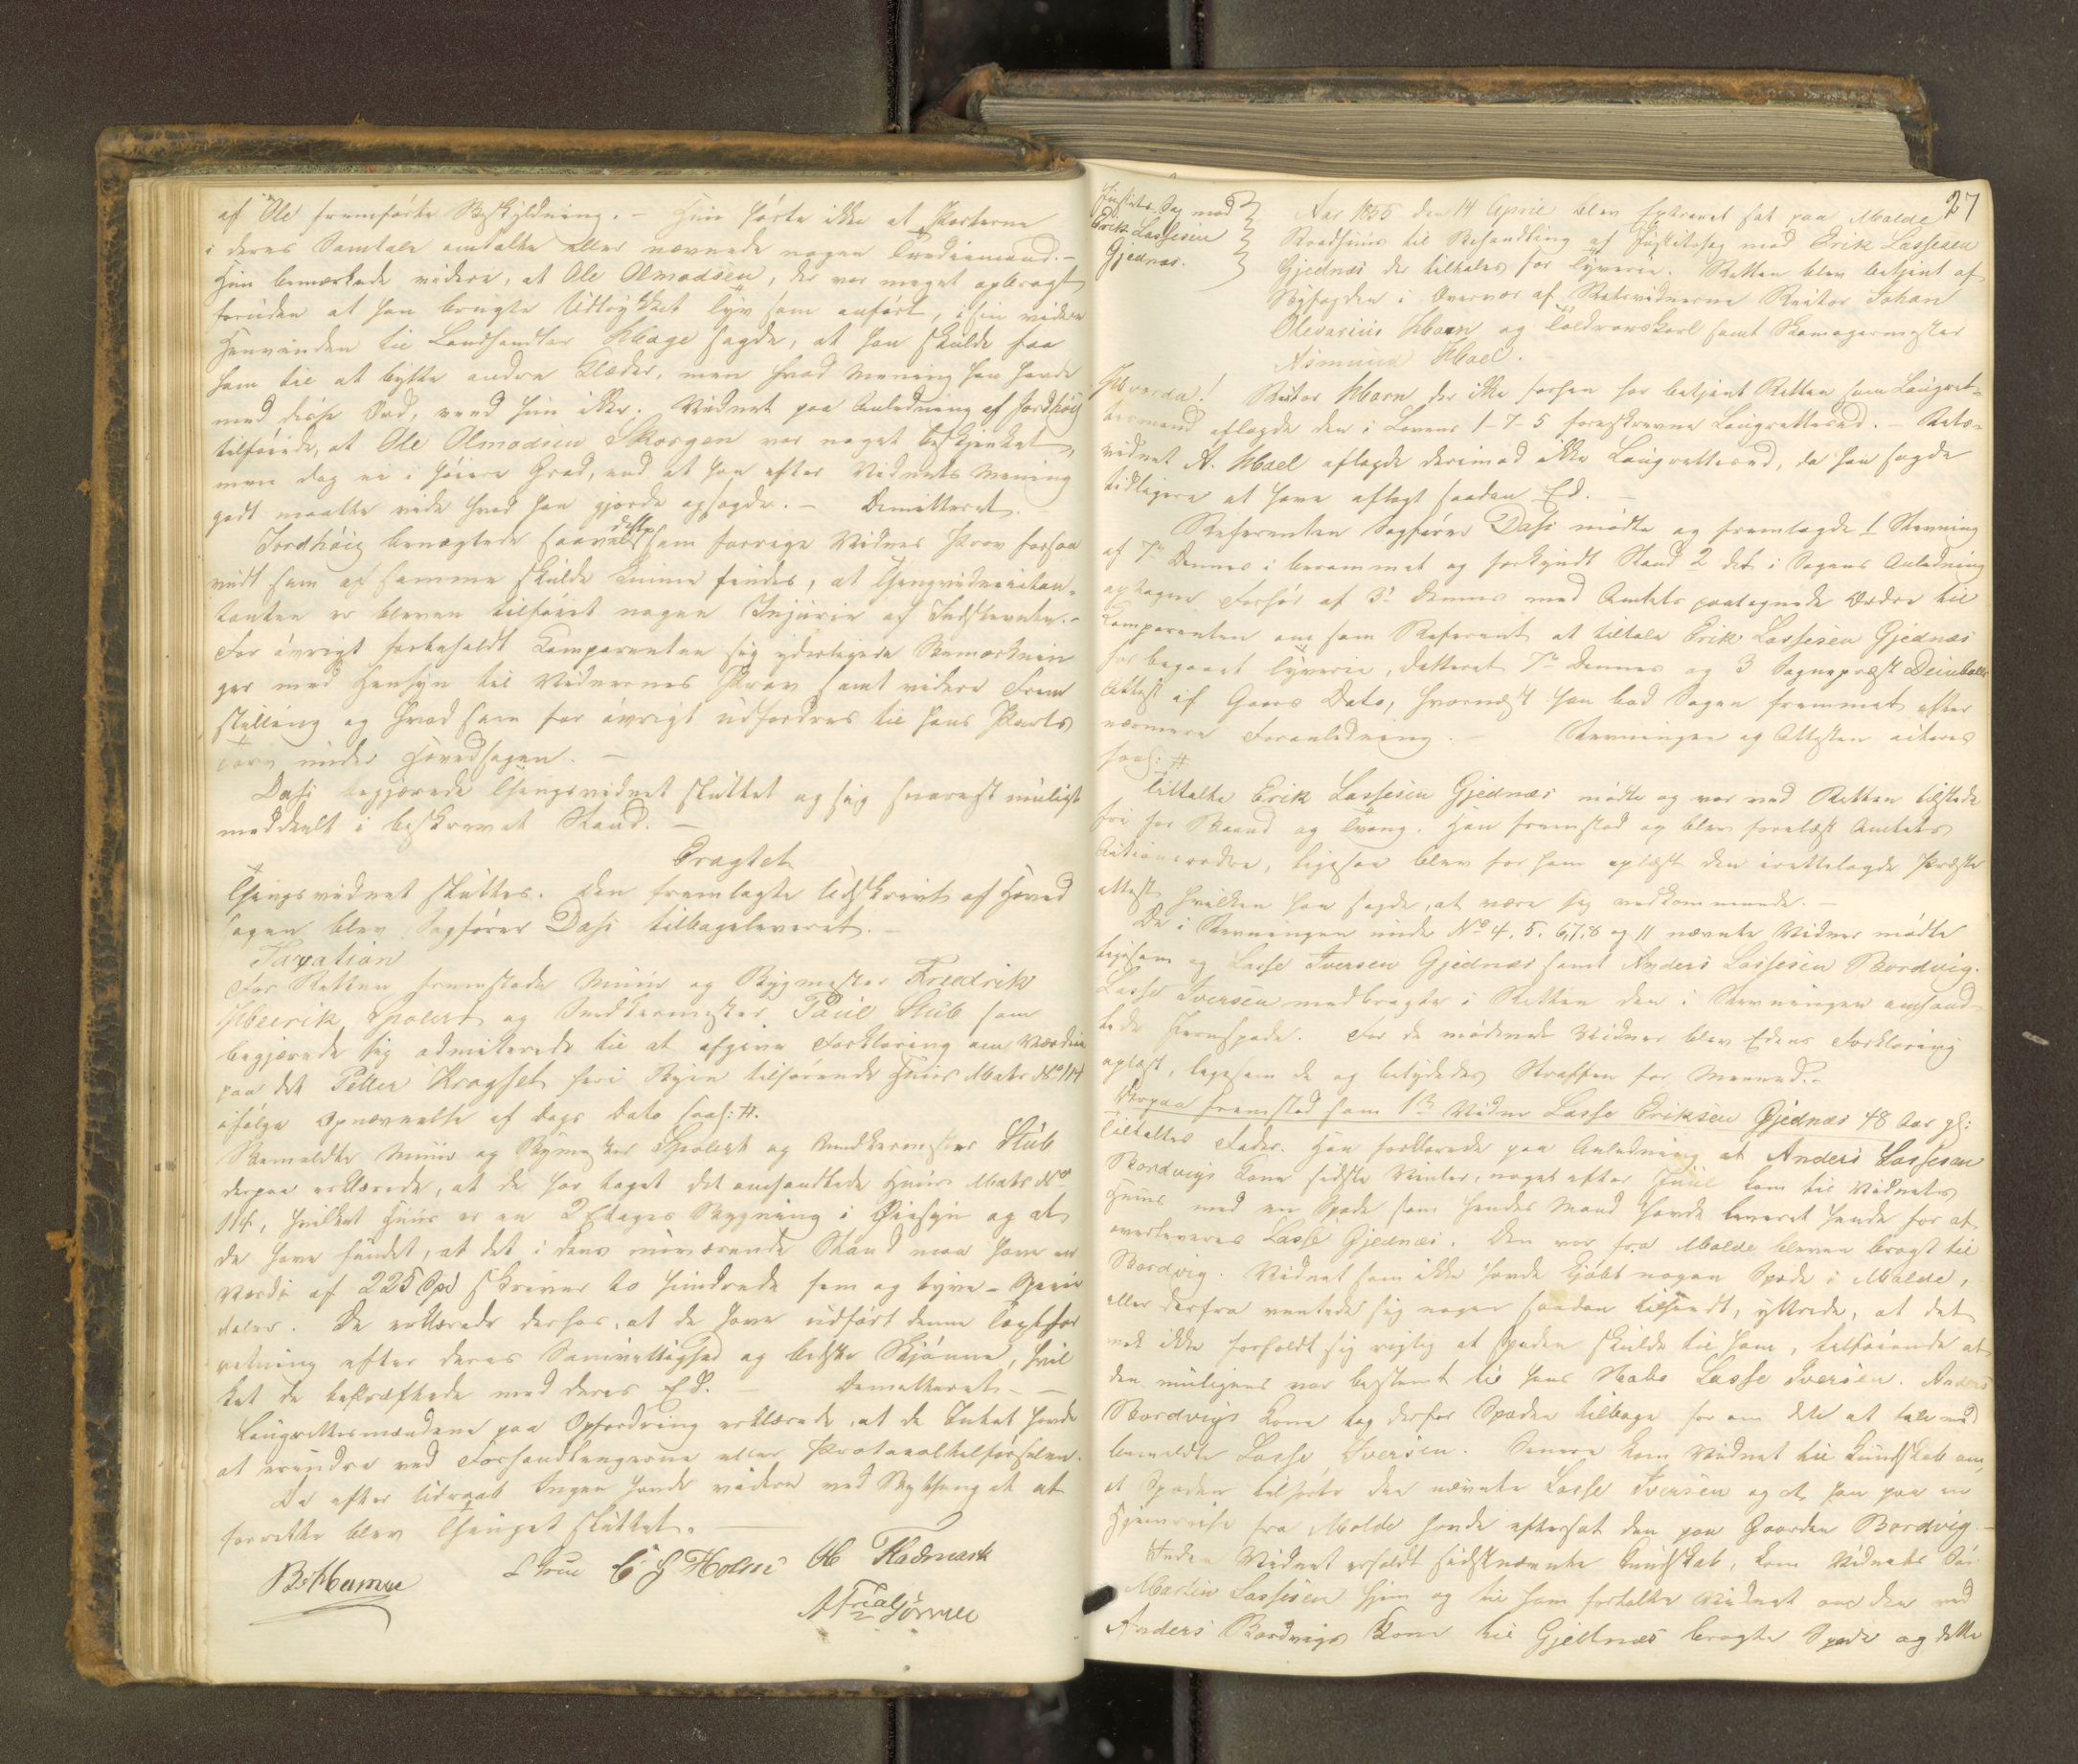 af Ole fremførte Beskyldning. – Hun hørte ikke at Parterne
i deres Samtale omtalte eller nævnede nogen Trediemand. –
Hun bemærkede videre, at Ole Olmodsen, der var meget opbragt
foruden at han brugte Udtrykket Tyv som anført, i sin videre
Henvenden til Landhandler Hage sagde, at han skulde faa
ham til at bytte andre Klæder, men hvad Mening han havde
med disse Ord, veed hun ikke. Vidnet paa Anledning af Jordhøig
tilføiede, at Ole Olmodsen Skorgen var noget beskjenket,
men dog ei i høiere Grad, end at han efter Vidnets Mening
godt maatte vide hvad han gjorde og sagde. – Demitteret.
Jordhöig benægtede saavel dette som forrige Vidnes Prov forsaa
vidt som af samme skulde kunne findes, at Thingsvidnecitan-
tanten er bleven tilføiet nogen Injurie af Indstevnte. –
For øvrigt forbeholdt Comparenten sig yderligere Bemærknin
ger med Hensyn til Vidnernes Prov samt videre Frem
stilling og hvad som for øvrigt udfordres til hans Parts
Tarv under Hovedsagen. –
Dahl begjærede Thingsvidnet sluttet og sig snarest muligt
meddeelt i beskrevet Stand. –
Eragtet
Thingsvidnet sluttes. Den fremlagte Udskrivt af Hoved
sagen blev Sagfører Dahl tilbageleveret. –
Taxation
For Retten fremstode Muur og Bygmester Fredrik
Spolert og Snedkermester Paul Stub som
begjærede sig admitterede til at afgive Forklaring om Værdien
paa det Petter Kragset her i Byen tilhørende Huus Matr No 114
ifølge Opnævnelse af Dags Dato saal: #.
Bemeldte Muur og Bymester Spolert og Snedkermester Stub
derpaa erklærede, at de har taget det omhandlede Huus Matr No
114, hvilket Huus er en 2 Etages Bygning i Øiesyn og at
de have fundet, at det i dens nuværende Stand maa have en
Værdi af 225 Spd skriver to hundrede fem og tyve – Specie
daler. De erklærede derhos, at de have udført denne Taxtfor
retning efter deres Samvittighed og bedste Skjønne, hvil
ket de bekræftede med deres Ed. – Demitteret –
Laugrettesmændene paa Opfordring erklærede, at de Intet havde
at erindre ved Forhandlingerne eller Protocoltilførselen.
Da efter Udraab Ingen havde videre ved Bythinget at
forrette blev Thinget sluttet.
C G Holm Kadmark
27
Justits Sag mod
Erik Lassesen
Gjednæs.
Aar 1855 den 14 April blev Extraret sat paa Molde
Raadhuus til Behandling af Justitssag mod Erik Lassesen
Gjednæs der tiltales for Tyverie. Retten blev betjent af
Byfogden i Overvær af Retsvidnerne Reitor Johan
Olevarius Horn og samt Skomagermester
Asmund Hoel.
Horn der ikke forhen har betjent Retten som Laugret-
tesmand aflagde den i Lovens 1-7-5 foreskrevne Laugretteseed. – Rets-
vidnet A. Hoel aflagde derimod ikke Laugretteseed, da han sagde
tidligere at have aflagt saadan Ed. –
Referenten Sagfører Dahl mødte og fremlagde 1 Stevning
af 7de Dennes i berammet og forkyndt Stand 2 det i Sagens Anledning
optagne Forhør af 3die Dennes med Amtets paategnede Ordre til
Comparenten om som Referent at tiltale Erik Lassesen Gjednæs
for begaaet Tyverie, datteret 7de Dennes og 3 Sognepræst Deinbolls
Attest af Gaars Dato, hvornæst han bad Sagen fremmet efter
nærmere Foranledning. – Stevningen og Attesten citeres
saal: #
Tiltalte Erik Lassesen Gjednæs mødte og var ved Retten tilstede
fri for Baand og Tvang. Han fremstod og blev forelæst Amtets
Actionsordre, ligesaa blev for ham oplæst den irettelagde Præste
attest hvilken han sagde, at være sig vedkommende. –
De i Stevningen under No 4. 5. 6, 7, 8 og 11 nævnte Vidner mødte
ligesom og Lasse Iversen Gjednæs samt Anders Lassesen Bordvig.
Lasse Iversen medbragte i Retten den i Stevningen omhand-
lede Jernspade. For de mødende Vidner blev Edens Forklaring
oplæst, ligesom de og betydedes Straffen for Meeneed. –
Derpaa fremstod som 1ste Vidne Lasse Eriksen Gjednæs 48 Aar gl:
Tiltaltes Fader. Han forklarede paa Anledning at Anders Lassesen
Bordvigs Kone sidste Vinter, noget efter Juul kom til Vidnets
Huus med en Spade som hendes Mand havde leveret hende for at
overleveres Lasse Gjednæs. Den var fra Molde bleven bragt til
Bordvig. Vidnet som ikke havde kjøbt nogen Spade i Molde,
eller derfra ventede sig nogen saadan tilsendt, yttrede, at det
nok ikke forholdt sig rigtig at Spaden skulde til ham, tilføiende at
den muligens var bestemt til hans Nabo Lasse Iversen. Anders
Bordvigs Kone tog derfor Spaden tilbage for om dette at tale med
bemeldte Lasse Iversen. Senere kom Vidnet til Kundskab om,
at Spaden tilhørte den nævnte Lasse Iversen og at han paa en
Hjemreise fra Molde havde eftersat den paa Gaarden Bordvig. –
Inden Vidnet erholdt sidstnævnte Kundskab, kom Vidnets Søn
Martin Lassesen hjem og til ham fortalte Vidnet om den ved
Anders Bordvigs Kone til Gjednæs bragte Spade og dette